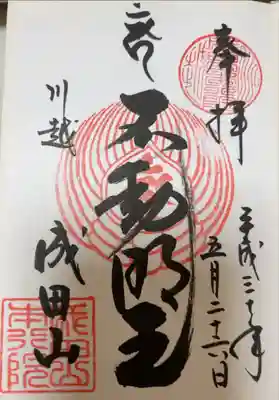 奉拝
平成三十年
五月二十六日
不動明王
川越
成田山